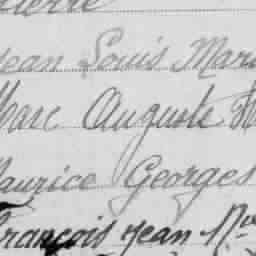 Pierre
Jean Louis Mari
Marc Auguste
Maurice Georges
François Jean